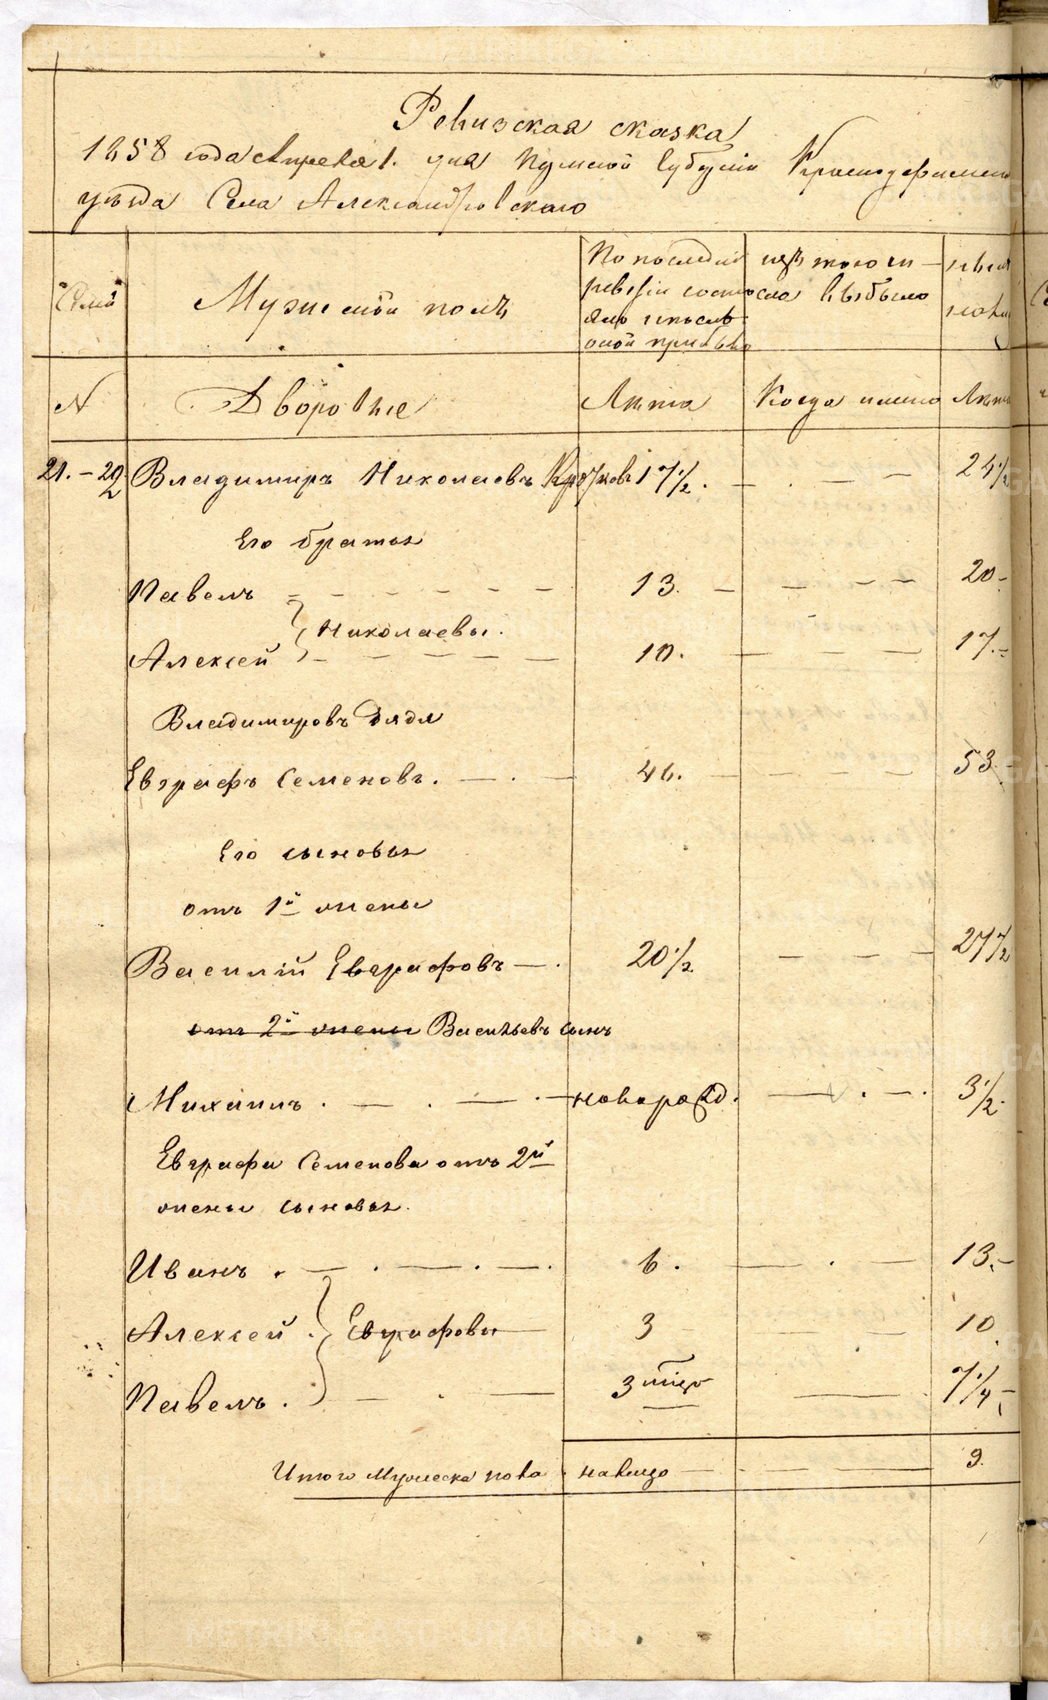 Ревизская сказка
1858 года Апреля 1. дня Пермской Губернии Красноуфимска
уезда Села Александровскаго
Семьи
Мужеской полъ
По последней
ревизии состо
яло и после
оной прибыло
изъ того чи
сла выбыло
ныне
N
Дворовые
Лета
Когда именно
Лета
21. – 20/2 Владимиръ Николаевъ 17 1/2. – . – – 24 1/2
Его братья
Павелъ – – – – – – 13. – – – – 20 –
} Николаевы.
Алексей – – – – – 10. – – – 17. –
Владимировъ Дядя
Евграфъ Семеновъ. – . – 46. – – – – 53 –
Его сыновья
отъ 1й жены
Василий Евграфовъ – . 20 1/2 – – – 27 1/2
отъ 2й жены Васильевъ сынъ
Михаилъ . – . – . – новорожд. – . – . 3 1/2.
Евграфа Семенова отъ 2й
жены сыновья.
Иванъ . – . – . – . 6. – . – 13. –
Алексей . } Евграфовы – 3 – – – 10
Павелъ . – . – 3 мце – 7 1/4 –
Итого Мужеска пола налицо – – – 9.
METRIKI.GASO-URAL.RU